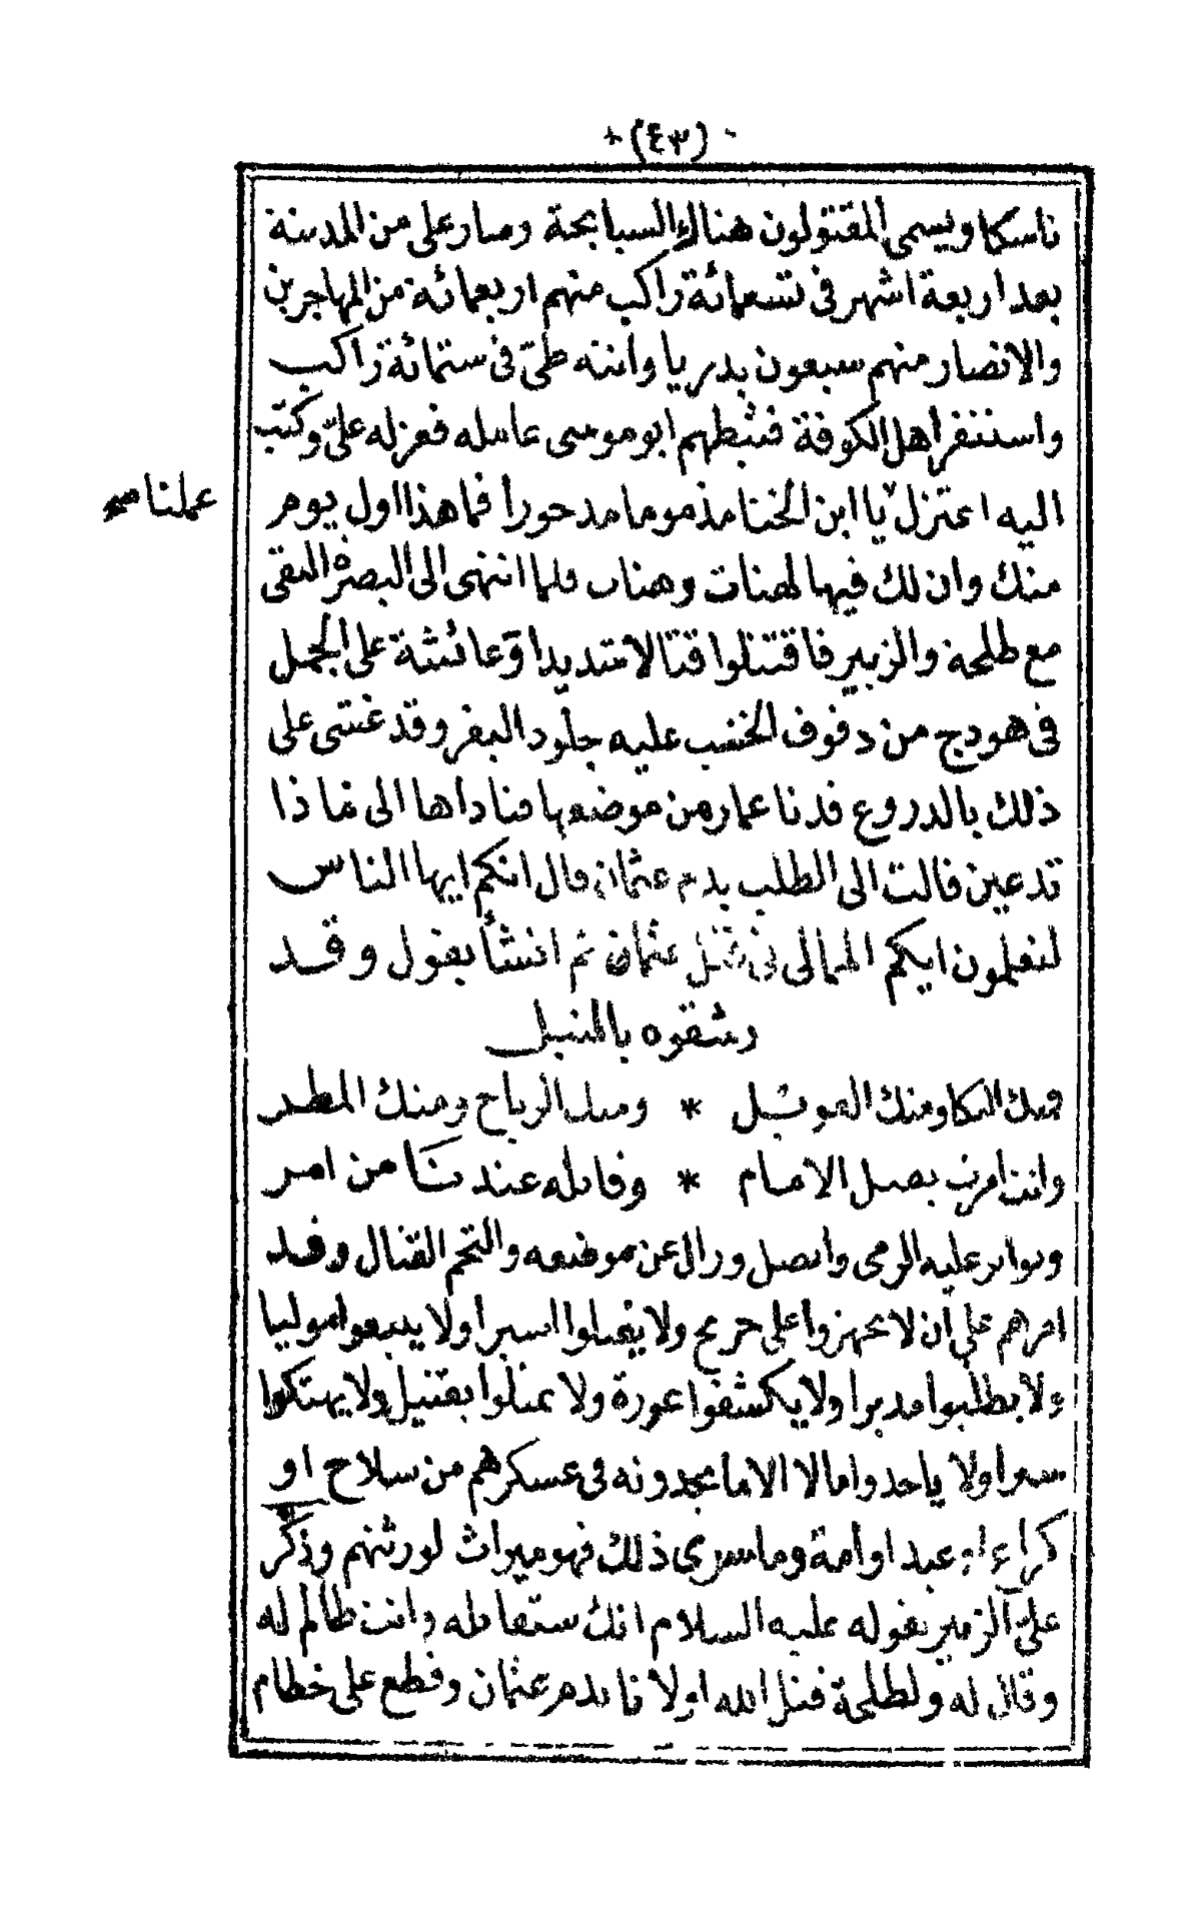 (٤٣)
ناسكا ويسمى المقتولون هناك السبابجة وصار على من المدينة
بعد اربعة اشهر فى تسعمائة راكب منهم اربعمائة من المهاجرين
والانصار منهم سبعون بدريا واتته طىّ فى ستمائة راكب
واستنفر اهل الكوفة فثبطهم ابو موسى عامله فعزله علىّ وكتب
اليه اعتزل يا ابن الخنا مذموما مدحورا فما هذا اول يوم
عملنا صح
منك وان لك فيها لهنات وهنات فلما انتهى الى البصرة التقى
مع طلحة والزبير فاقتتلوا قتالا شديدا وعائشة على الجمل
فى هودج من دفوف الخشب عليه جلود البقر وقد غشى على
ذلك بالدروع فدنا عمار من موضعها فناداها الى ماذا
تدعين قالت الى الطلب بدم عثمان قال انكم ايها الناس
لتعلمون ايكم الممالى فى قتل عثمان ثم انشأ يقول وقد
رشقوه بالنبل
فمنك البكا ومنك العويل * ومنك الرياح ومنك المطر
وانت امرت بقتل الامام * وقاتله عندنا من امر
وتواتر عليه الرمى واتصل وزال عن موضعه والتحم القتال وقد
امرهم على ان لا يجهزوا على جريح ولا يقتلوا اسيرا ولا يتبعوا موليا
ولا يطلبوا مدبرا ولا يكشفوا عورة ولا يمثلوا بقتيل ولا يهتكوا
سترا ولا ياخذوا مالا الا ما يجدونه فى عسكرهم من سلاح او
كراع او عبد او امة وما سوى ذلك فهو ميراث لورثتهم وذكر
علىّ الزبير بقوله عليه السلام انك ستقاتله وانت ظالم له
وقال له ولطلحة قتل الله اولانا بدم عثمان وقطع على خطام